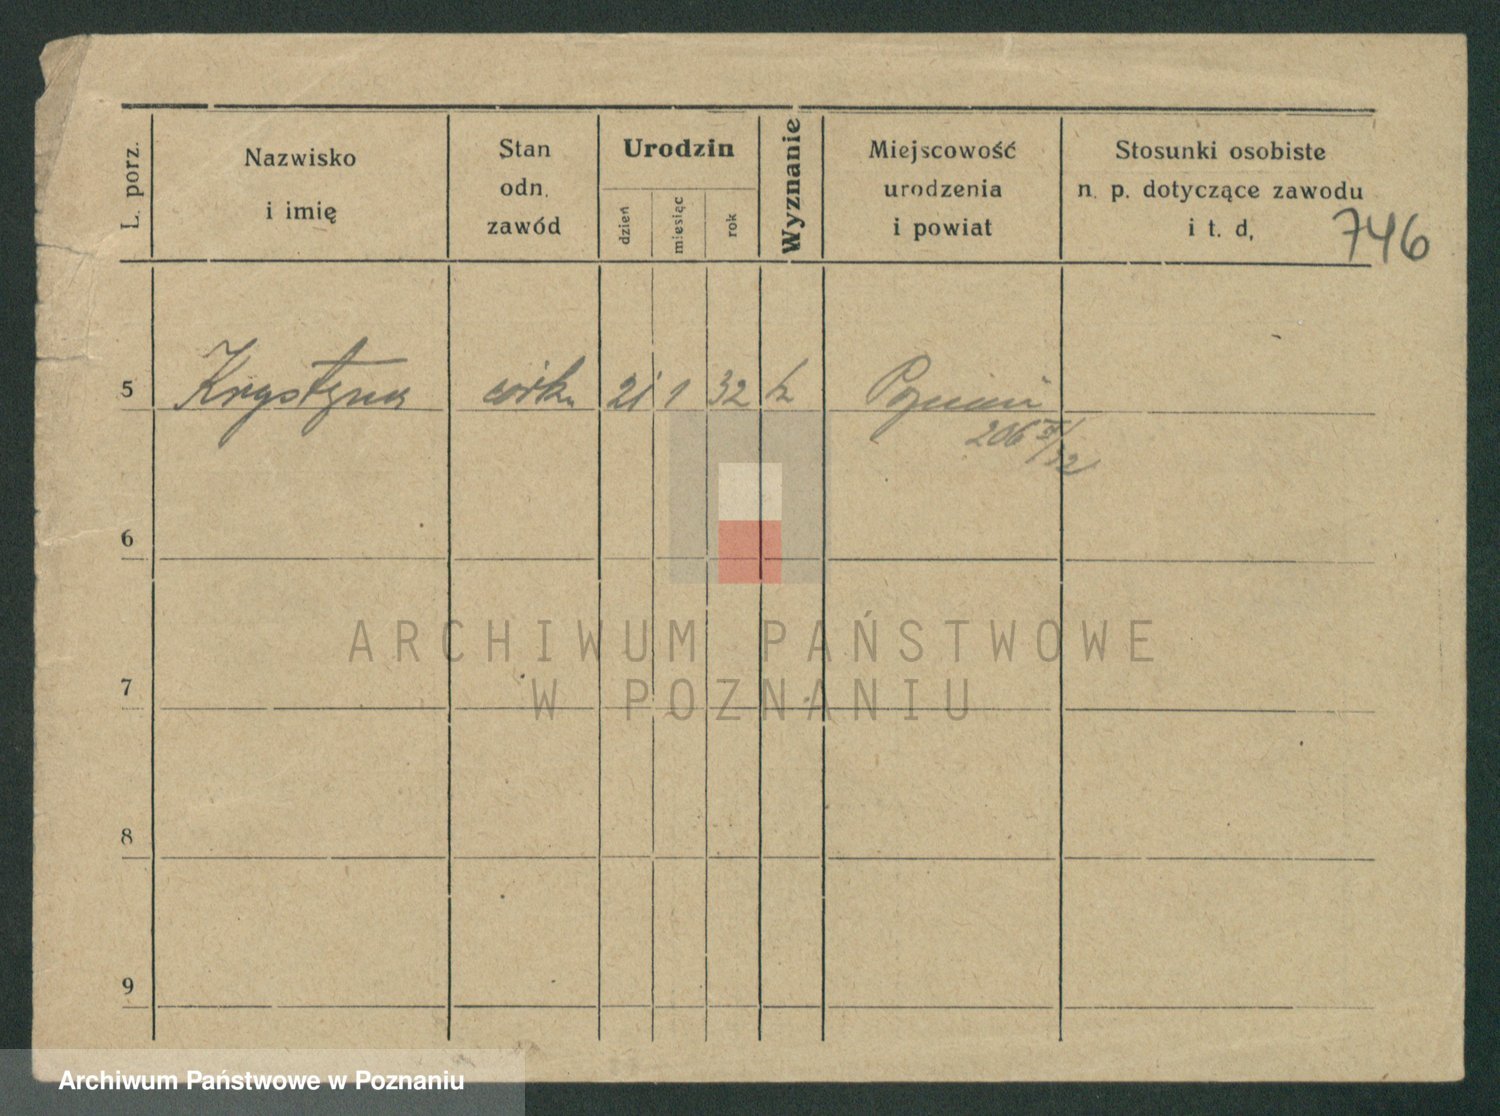 L. porz.
Nazwisko
i imię
Stan
odn.
zawód
Urodzin
dzień
miesiąc
rok
Wyznanie
Miejscowość
urodzenia
i powiat
Stosunki osobiste
n. p. dotyczące zawodu
i t. d,
746
5 Krystyna córka 21 1 32 k Poznań
206
6
7
8
9
ARCHIWUM PAŃSTWOWE
W POZNANIU
Archiwum Państwowe w Poznaniu